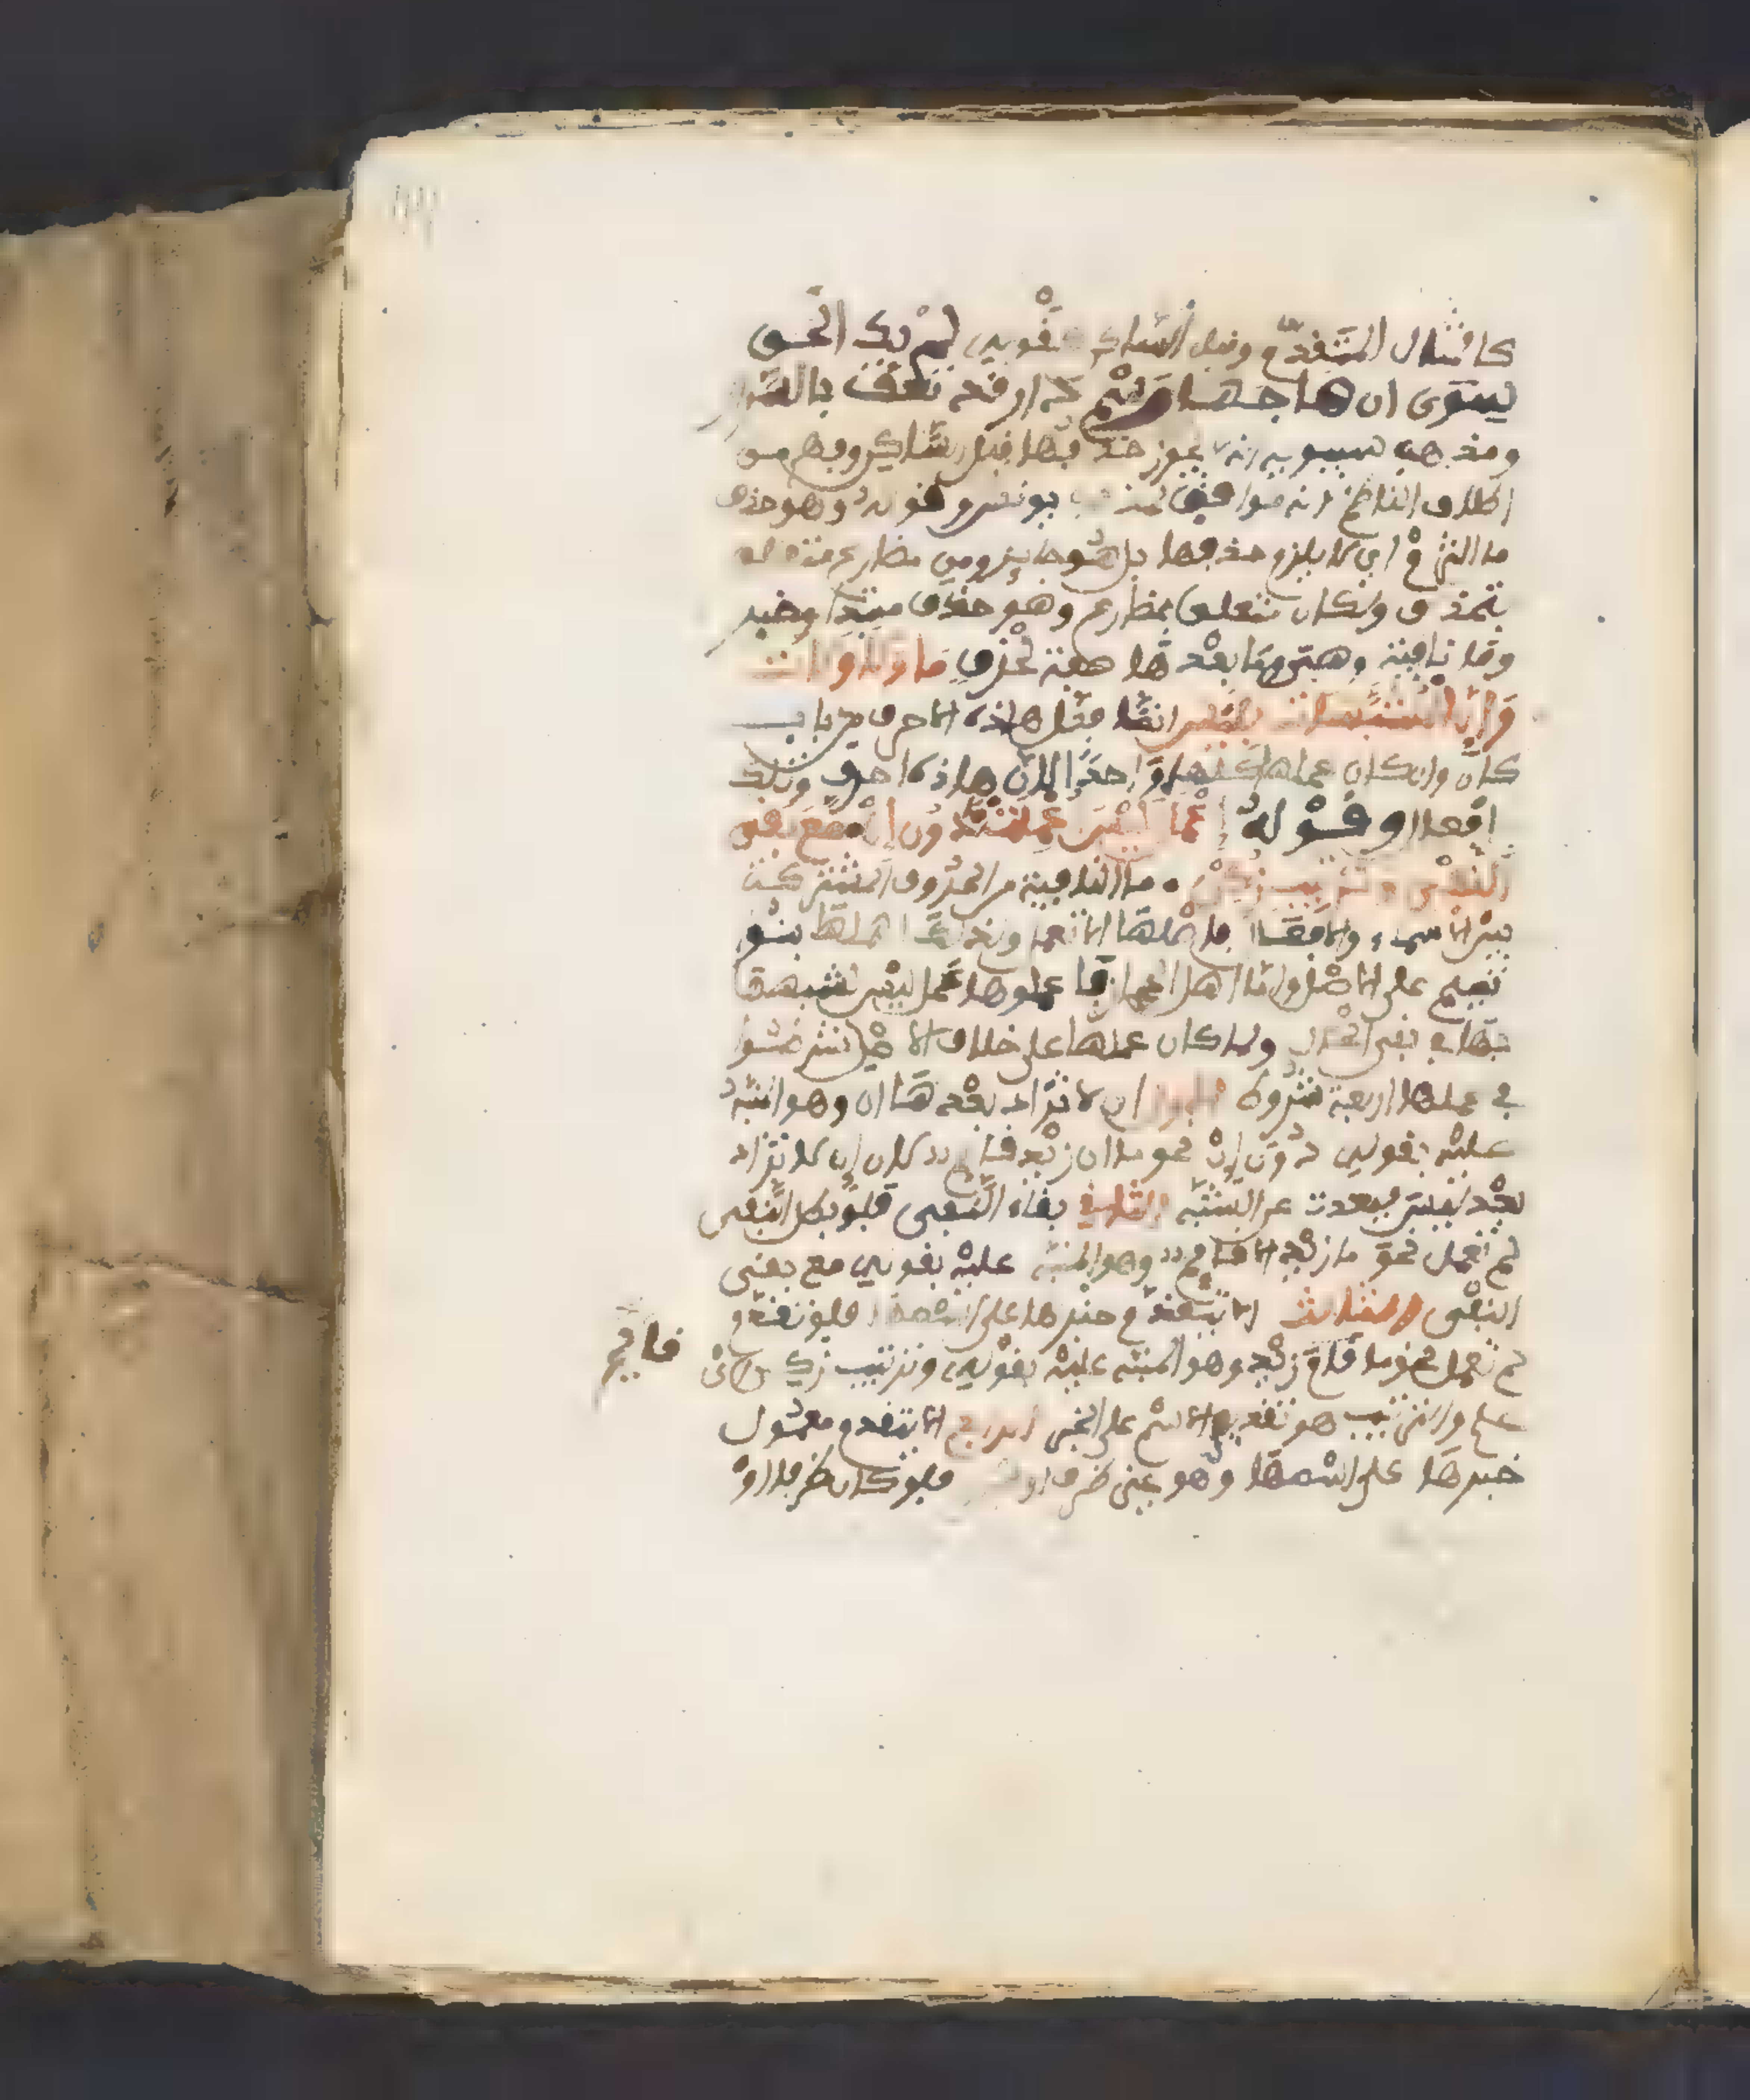 كالمثال المتقدم وقبل الساكن كقوله لم يك الحق
سوى ان هاجه رسم دار قد تعفت بالسرر
ومذهب سيبويه انه لا يجوز حذفها قبل ساكن وفهم من
اطلاق الناظم انه موافق لمذهب يونس وقوله وهو حذف
ما التزم اي لا يلزم حذفها بل هو جايز ومن مضارع متعلق
بتحذف وبكان متعلق بمضارع وهو حذف مبتدا وخبر
وما نافية وهي وما بعدها صفة لحذف ما ولا ولات
وإن المشبهات بليس انما فصل هذه الاحرف من باب
كان وان كان عملها واحدا لان هاذه احرف وتلك
افعال وقوله إعمال ليس أعملت ما دون إن مع بقا
النفي وترتيب زكن ما النافية من الحروف المشتركة
بين الاسماء والافعال فاصلها الا تعمل وكذلك اهملها بنو
تميم على الاصل واما اهل الحجاز فاعملوها عمل ليس لشبهها
بها في نفي الحال ولما كان عملها على خلاف الاصل شرطوا
في عملها اربعة شروط الاول ان لا تزاد بعدها ان وهو المنبه
عليه بقوله دون إن نحو ما ان زيد قايم لان إن لا تزاد
بعد ليس فبعدت عن الشبه الثاني بقاء النفي فلو بطل النفي
لم تعمل نحو ما زيد الا قايم وهو المنبه عليه بقوله مع بقى
النفي الثالث الا يتقدم خبرها على اسمها فلو تقدم
لم تعمل نحو ما قايم زيد وهو المنبه عليه بقوله وترتيب زكن اي
علم والترتيب هو تقديم الاسم على الخبر الرابع الا يتقدم معمول
خبرها على اسمها وهو غير ظرف او فلو كان ظرفا او
قايم